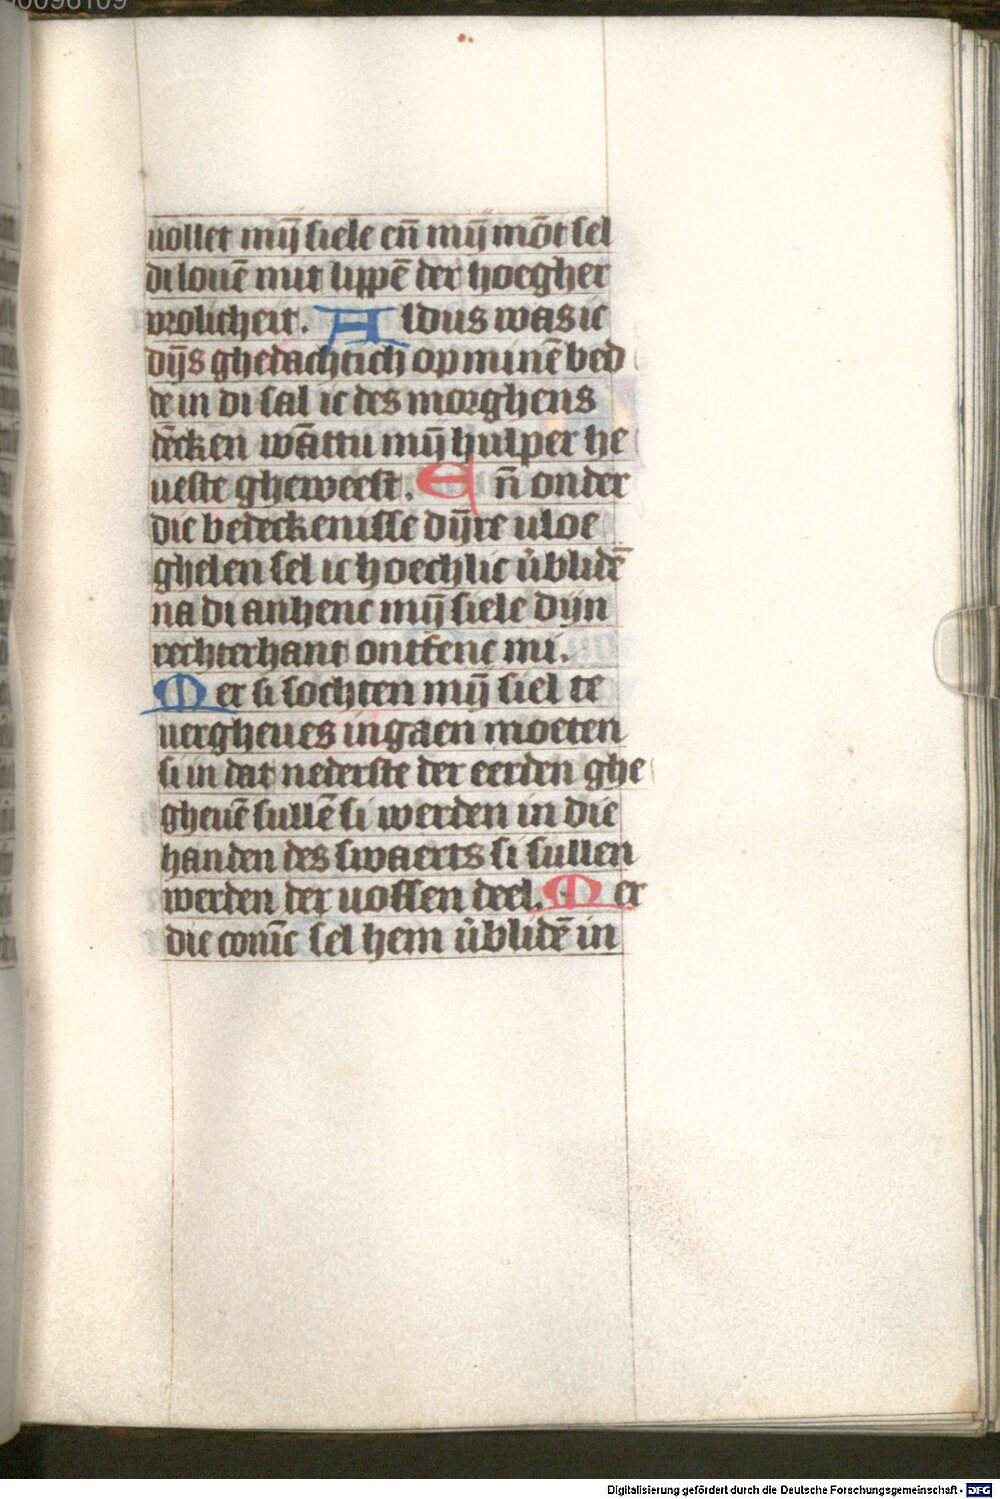 00096109
uollet mij siele en̄ mij mōt sel
di louē mit lippē der hoegher
vrolicheit. Aldus was ic
dijs ghedachtich op minē bed
de in di sal ic des morghens
dēcken wāttu mij hulper he
ueste gheweest. En̄ onder
die bedeckenisse dijre uloe
ghelen sel ic hoechlic v̄blidē
na di anhenc mij siele dijn
rechterhant ontfenc mi.
Mer si sochten mij siel te
uergheues ingaen moeten
si in dat nederste der eerden ghe
gheuē sullē si werden in die
handen des swaerts si sullen
werden der uossen deel. Mer
die coninc sel hem v̄blidē in
Digitalisierung gefördert durch die Deutsche Forschungsgemeinschaft - DFG